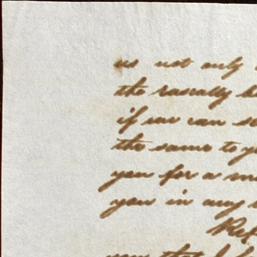 us not only
the rascally
if we can se
the same to y
you for a m
you in any
Ref